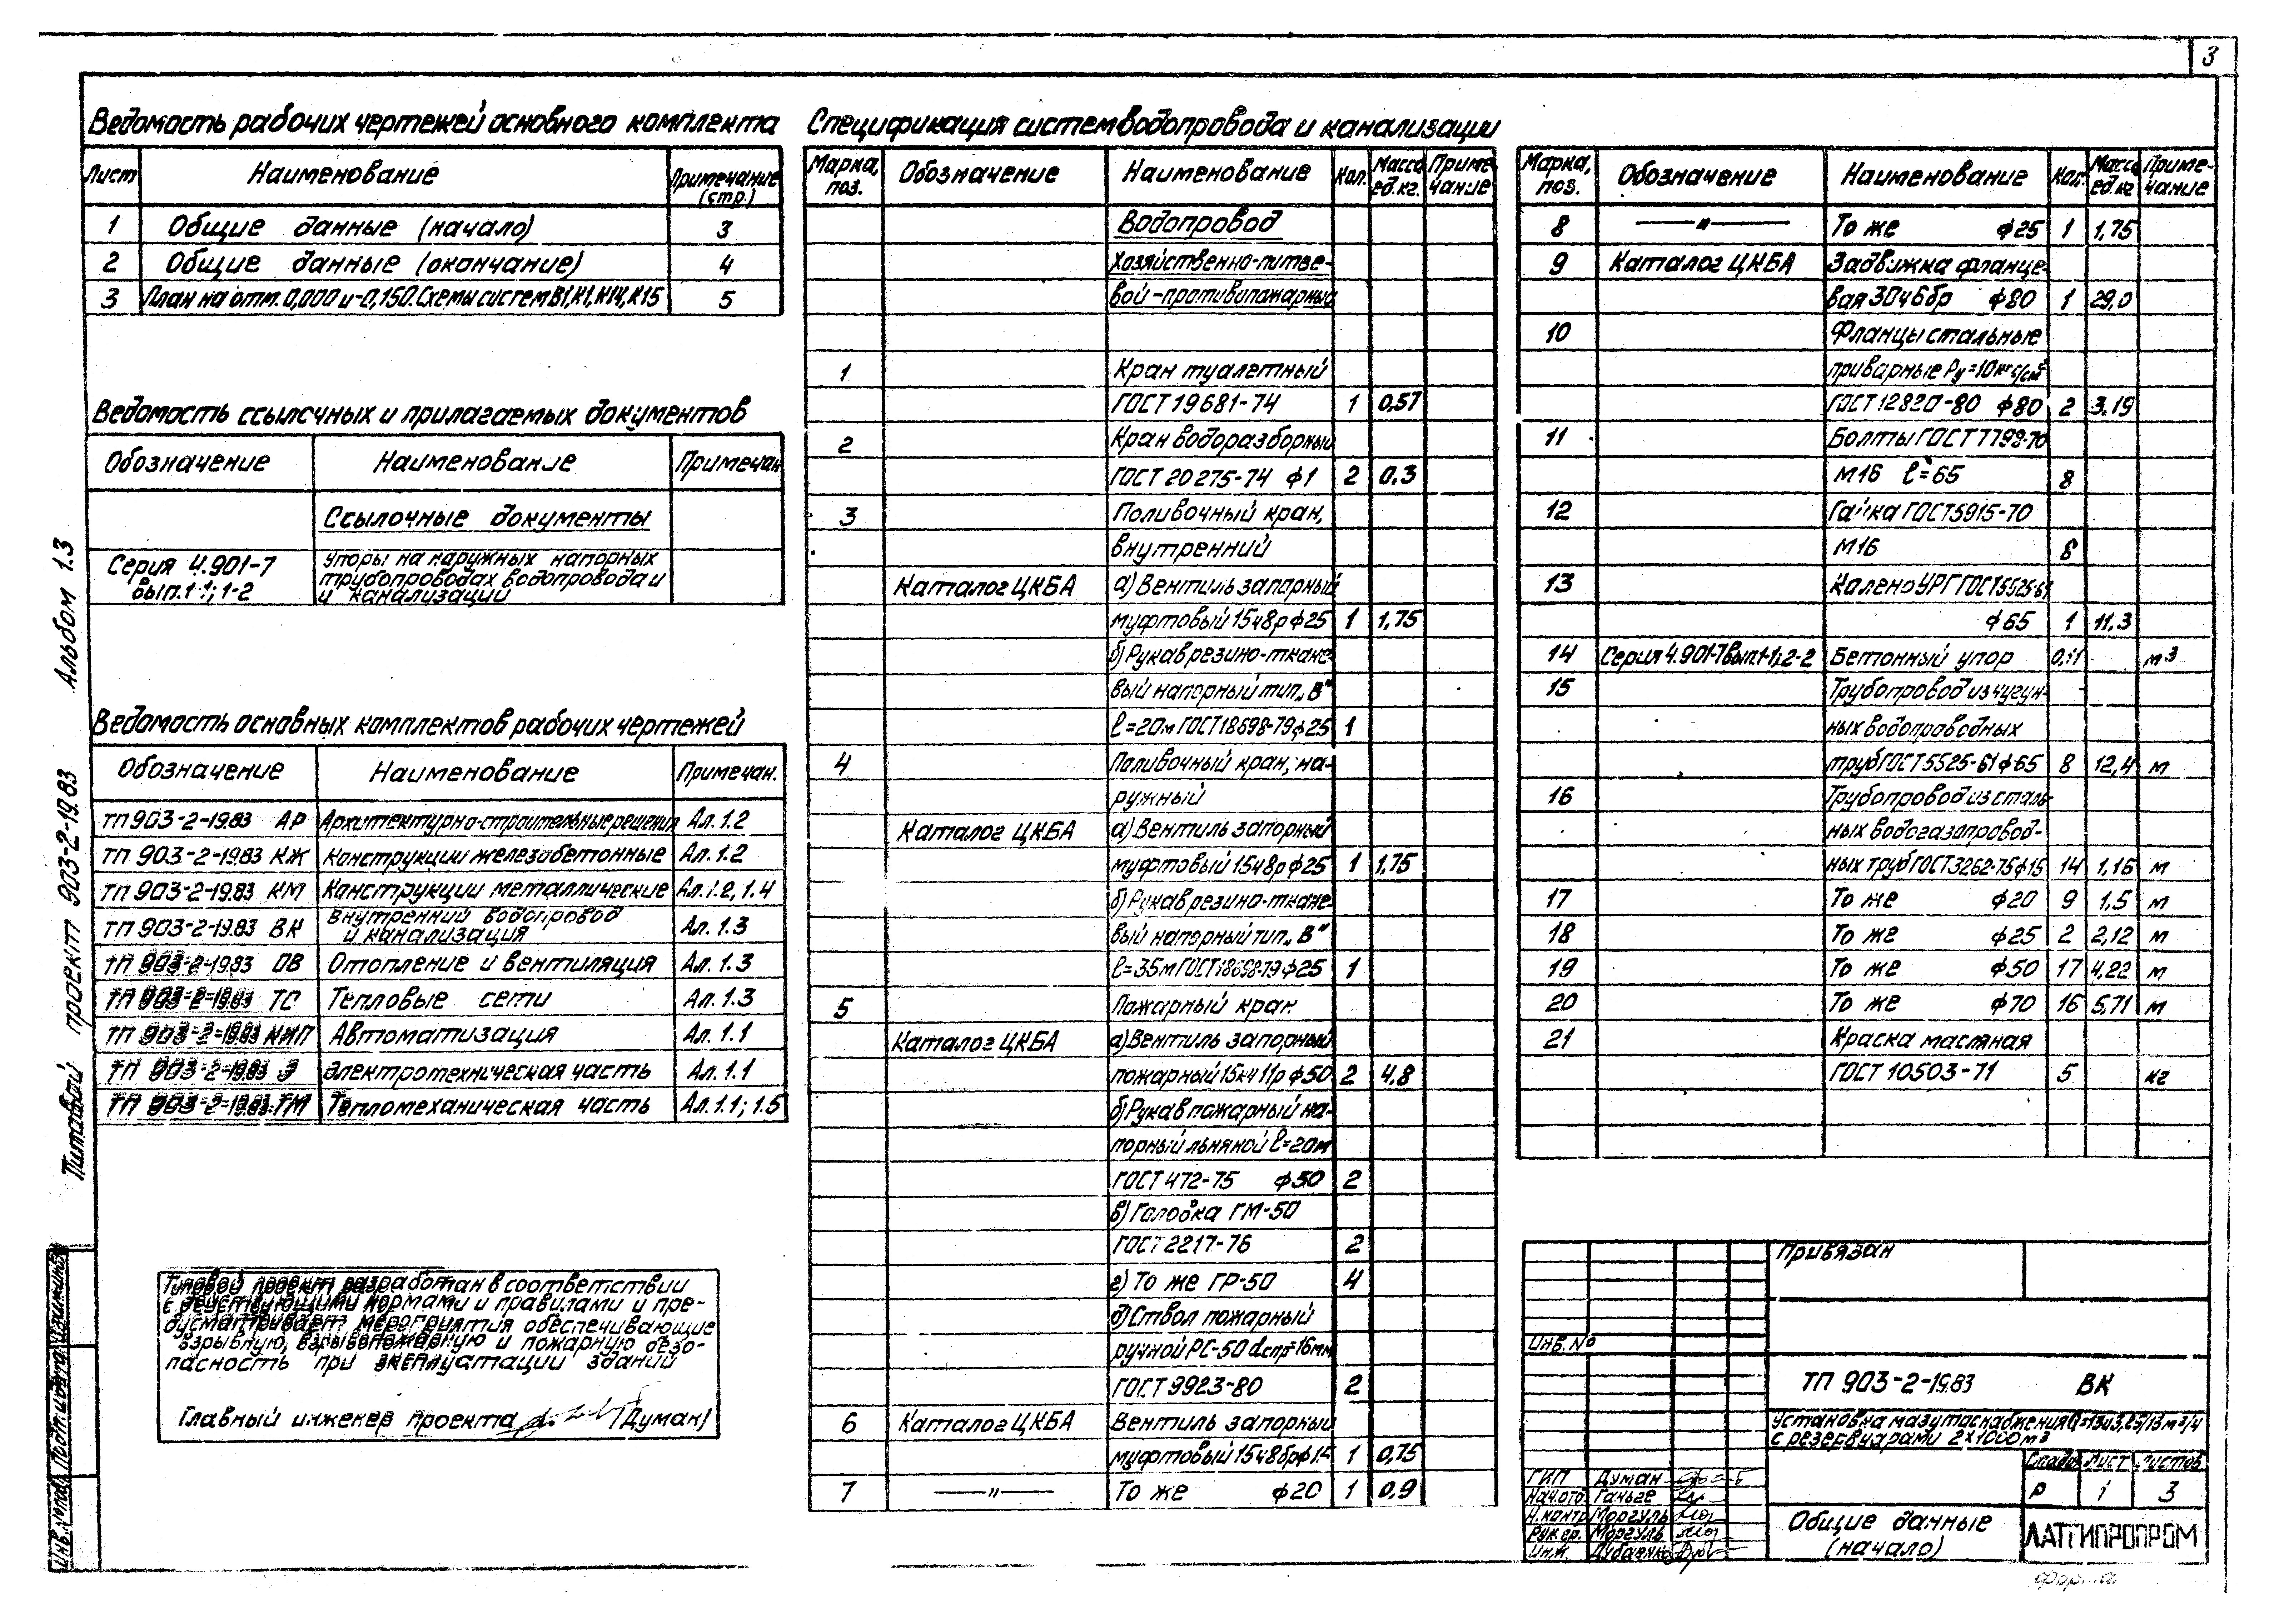 3
Ведомость рабочих чертежей основного комплекта
Лист Наименование Примечание (стр.)
1 Общие данные (начало) 3
2 Общие данные (окончание) 4
3 План на отм. 0,000 и -0,150. Схемы систем В1, К1, К14, К15 5
Ведомость ссылочных и прилагаемых документов
Обозначение Наименование Примечан.
Ссылочные документы
Серия 4.901-7 вып.1-1; 1-2 Упоры на наружных напорных
трубопроводах водопровода и
и канализации
Ведомость основных комплектов рабочих чертежей
Обозначение Наименование Примечан.
ТП 903-2-19.83 АР Архитектурно-строительные решения Ал. 1.2
ТП 903-2-19.83 КЖ Конструкции железобетонные Ал. 1.2
ТП 903-2-19.83 КМ Конструкции металлические Ал. 1.2, 1.4
ТП 903-2-19.83 ВК Внутренний водопровод и канализация Ал. 1.3
ТП 903-2-19.83 ОВ Отопление и вентиляция Ал. 1.3
ТП 903-2-19.83 ТС Тепловые сети Ал. 1.3
ТП 903-2-19.83 КИП Автоматизация Ал. 1.1
ТП 903-2-19.83 Э Электротехническая часть Ал. 1.1
ТП 903-2-19.83 ТМ Тепломеханическая часть Ал. 1.1; 1.5
Типовой проект разработан в соответствии
с действующими нормами и правилами и пре-
дусматривает мероприятия обеспечивающие
взрывную, взрывопожарную и пожарную безо-
пасность при эксплуатации зданий
Главный инженер проекта (Думан)
Типовой проект 903-2-19.83 Альбом 1.3
Инв.№ подл. Подп. и дата Взам.инв.№
Спецификация систем водопровода и канализации
Марка, поз. Обозначение Наименование Кол. Масса ед.кг. Приме-чание
Водопровод
хозяйственно-питье-
вой-противопожарный
1 Кран туалетный
ГОСТ 19681-74 1 0,57
2 Кран водоразборный
ГОСТ 20275-74 ф1 2 0.3
3 Поливочный кран,
внутренний
Каталог ЦКБА а) Вентиль запорный
муфтовый 15ч8р ф25 1 1,75
б) Рукав резино-ткане-
вый напорный тип „В"
ℓ=20м ГОСТ 18698-79 ф25 1
4 Поливочный кран, на-
ружный
Каталог ЦКБА а) Вентиль запорный
муфтовый 15ч8р ф25 1 1,75
б) Рукав резино-ткане-
вый напорный тип „В"
ℓ=35м ГОСТ 18698-79 ф25 1
5 Пожарный кран
Каталог ЦКБА а) Вентиль запорный
пожарный 15кч11р ф50 2 4,8
б) Рукав пожарный на-
порный льняной ℓ=20м
ГОСТ 472-75 ф50 2
в) Головка ГМ-50
ГОСТ 2217-76 2
г) То же ГР-50 4
д) Ствол пожарный
ручной РС-50 dспр=16мм
ГОСТ 9923-80 2
6 Каталог ЦКБА Вентиль запорный
муфтовый 15ч8бр 1 0,75
7 —"— То же ф20 1 0,9
Марка, поз. Обозначение Наименование Кол. Масса ед.кг Приме-чание
8 —"— То же ф25 1 1,75
9 Каталог ЦКБА Задвижка фланце-
вая 30ч6бр ф80 1 29,0
10 Фланцы стальные
приварные Ру=10кгс/см²
ГОСТ 12820-80 ф80 2 3.19
11 Болты ГОСТ 7798-70
М16 ℓ=65 8
12 Гайка ГОСТ 5915-70
М16 8
13 Колено УРГ ГОСТ 5525-61
ф65 1 11,3
14 Серия 4.901-7 вып.1-1; 2-2 Бетонный упор м³
15 Трубопровод из чугун-
ных водопроводных
труб ГОСТ 5525-61 ф65 8 12,4 м
16 Трубопровод из сталь-
ных водогазопровод-
ных труб ГОСТ 3262-75 ф15 14 1,16 м
17 То же ф20 9 1,5 м
18 То же ф25 2 2,12 м
19 То же ф50 17 4,22 м
20 То же ф70 16 5,71 м
21 Краска масляная
ГОСТ 10503-71 5 кг
Привязан
Инв.№
ТП 903-2-19.83 ВК
Установка мазутоснабжения
с резервуарами 2×1000м³
Стадия Лист Листов
Р 1 3
ГИП Думан
Нач.отд. Ганьге
Н.контр. Моргуль
Рук.гр. Моргуль
Инж.
Общие данные
(начало)
ЛАТГИПРОПРОМ